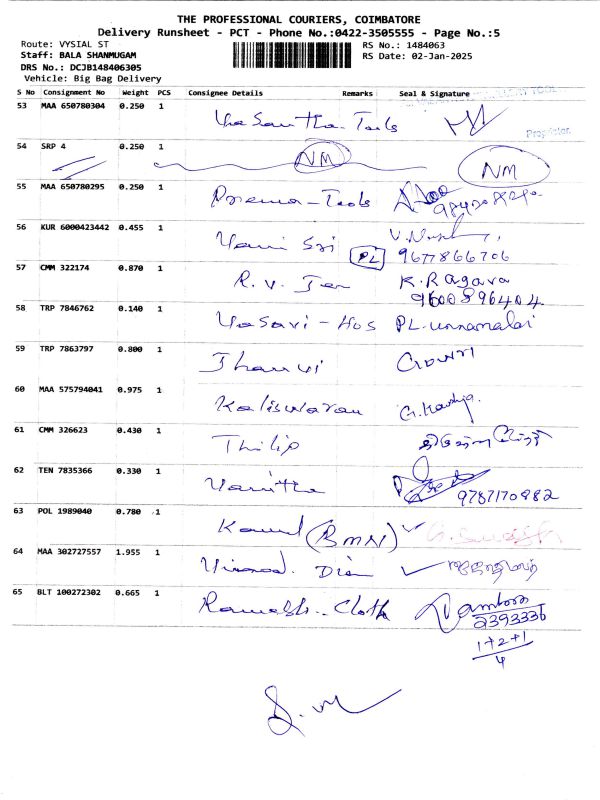 THE PROFESSIONAL COURIERS, COIMBATORE
Delivery Runsheet - PCT - Phone No.:0422-3505555 - Page No.:5
Route: VYSIAL ST RS No.: 1484063
Staff: BALA SHANMUGAM RS Date: 02-Jan-2025
DRS No.: DCJB148406305
Vehicle: Big Bag Delivery
S No Consignment No Weight PCS Consignee Details Remarks Seal & Signature
53 MAA 650780304 0.250 1 Vasantha Tools
Proprietor
54 SRP 4 0.250 1 NM NM
55 MAA 650780295 0.250 1 Prema-Tools
56 KUR 6000423442 0.455 1 Yami Sri
PL 9677866706
57 CMM 322174 0.870 1 R. V. Jen K.Ragava
9600896404
58 TRP 7846762 0.140 1 Vasavi-Hos PL.unnamalai
59 TRP 7863797 0.800 1 Jhanvi Gowri
60 MAA 575794041 0.975 1 Kaliswaran
61 CMM 326623 0.430 1 Thilip
62 TEN 7835366 0.330 1 Vanitha
9787170982
63 POL 1989040 0.780 1 Kamal (BMN)
64 MAA 302727557 1.955 1
65 BLT 100272302 0.665 1 Ramesh-Cloth
2393336
1+2+1
4